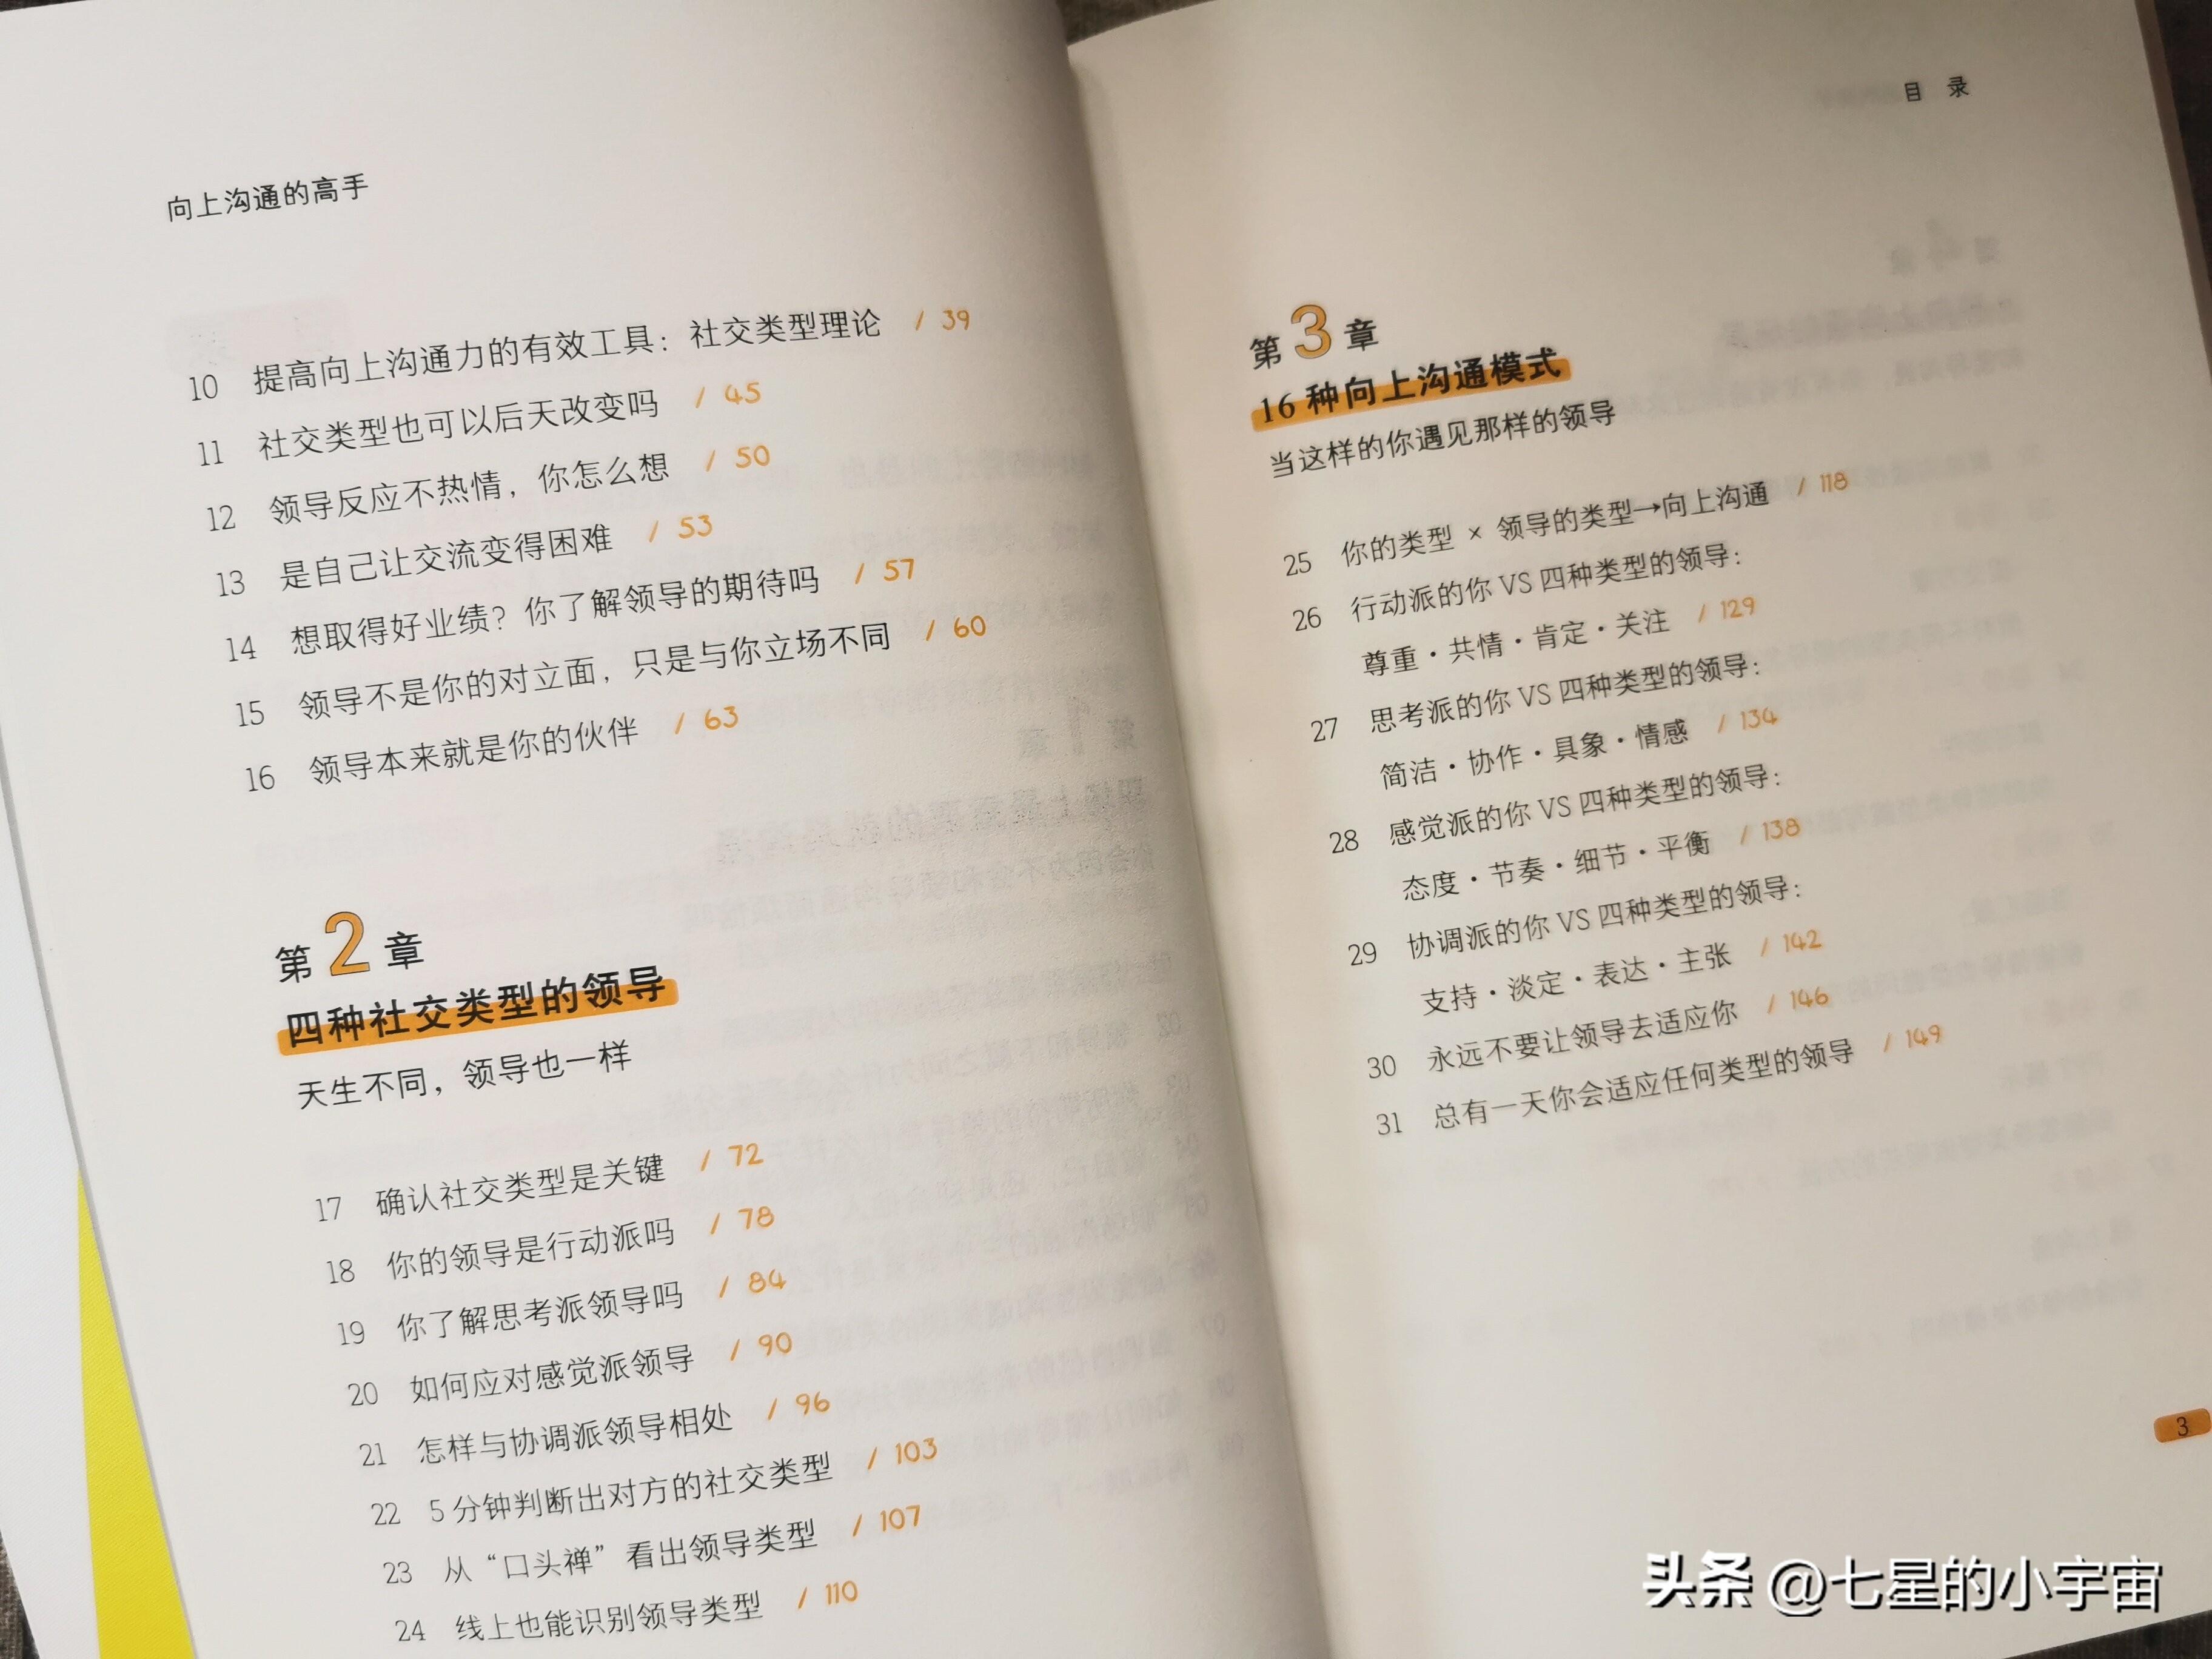 向上沟通的高手
10 提高向上沟通力的有效工具：社交类型理论 / 39
11 社交类型也可以后天改变吗 / 45
12 领导反应不热情，你怎么想 / 50
13 是自己让交流变得困难 / 53
14 想取得好业绩？你了解领导的期待吗 / 57
15 领导不是你的对立面，只是与你立场不同 / 60
16 领导本来就是你的伙伴 / 63
第2章
四种社交类型的领导
天生不同，领导也一样
17 确认社交类型是关键 / 72
18 你的领导是行动派吗 / 78
19 你了解思考派领导吗 / 84
20 如何应对感觉派领导 / 90
21 怎样与协调派领导相处 / 96
22 5分钟判断出对方的社交类型 / 103
23 从“口头禅”看出领导类型 / 107
24 线上也能识别领导类型 / 110
目 录
第3章
16种向上沟通模式
当这样的你遇见那样的领导
25 你的类型 × 领导的类型→向上沟通 / 118
26 行动派的你 VS 四种类型的领导：
尊重·共情·肯定·关注 / 129
27 思考派的你 VS 四种类型的领导：
简洁·协作·具象·情感 / 134
28 感觉派的你 VS 四种类型的领导：
态度·节奏·细节·平衡 / 138
29 协调派的你 VS 四种类型的领导：
支持·淡定·表达·主张 / 142
30 永远不要让领导去适应你 / 146
31 总有一天你会适应任何类型的领导 / 149
3
头条 @七星的小宇宙